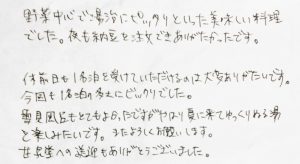 野菜中心で湯治にピッタリといった美味しい料理
でした。夜も納豆を注文できありがたかったです。
休前日も1名泊を受けていただけるのは大変ありがたいです。
今回も1名泊の多さにビックリでした。
雪見風呂もとてもよかったですがやはり夏に来てゆっくりぬる湯
を楽しみたいです。またよろしくお願いします。
への送迎もありがとうございました。